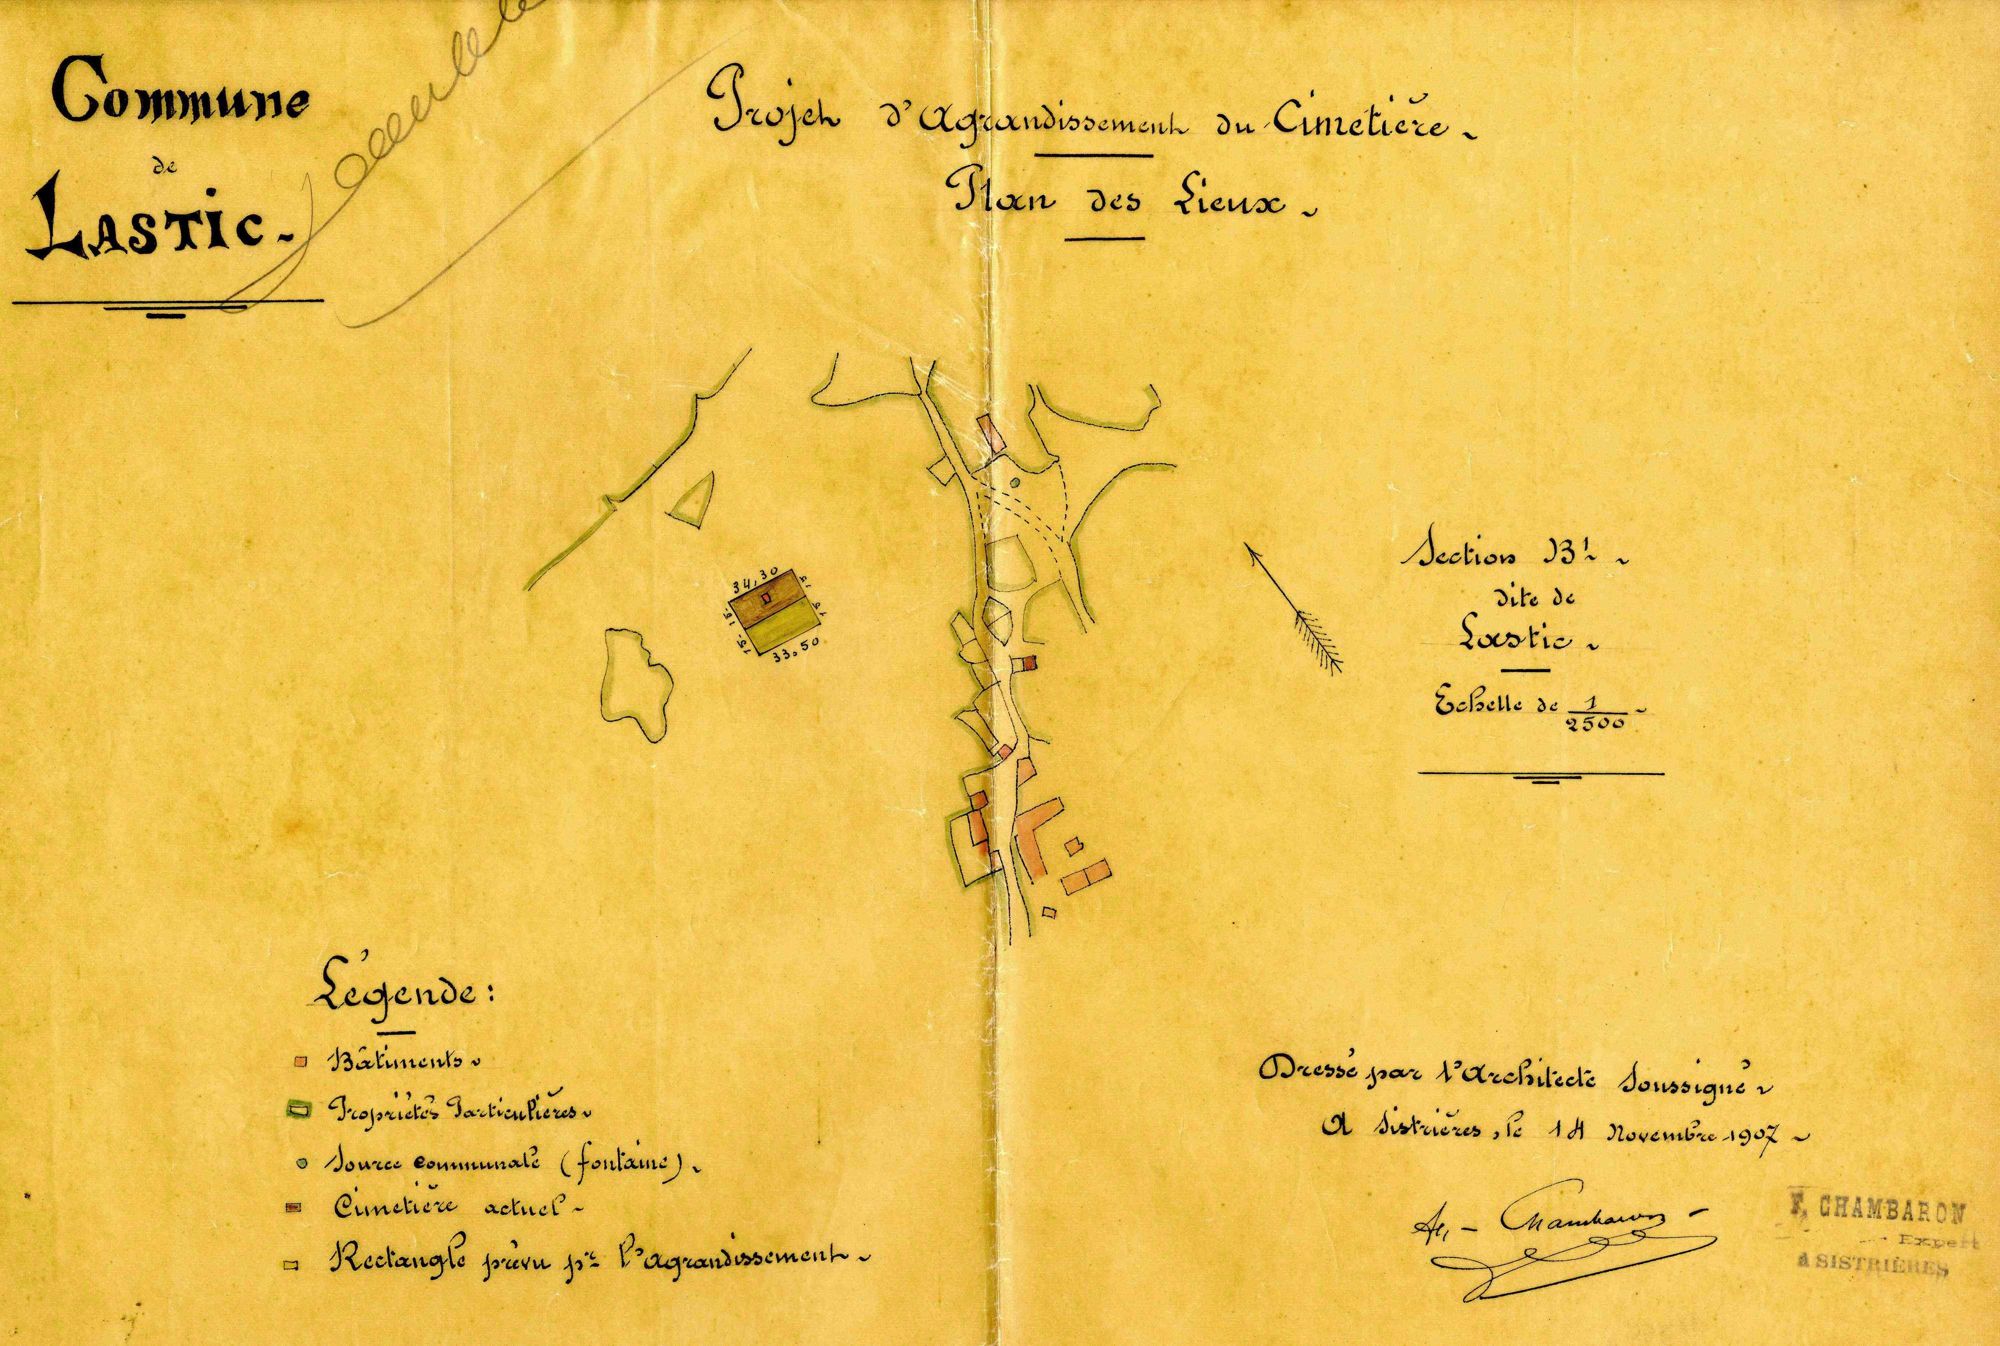 Commune
de
Lastic.
Projet d'Agrandissement du Cimetière.
Plan des Lieux.
34,30
15
15
33,50
Section B¹
dite de
Lastic.
Echelle de 1/2500
Légende:
Bâtiments.
Propriétés Particulières.
Source communale (fontaine).
Cimetière actuel.
Rectangle prévu pr l'agrandissement.
Dressé par l'Architecte Soussigné.
A Sistrières, le 14 Novembre 1907.
Chambaron
F. CHAMBARON
Expert
à SISTRIÈRES